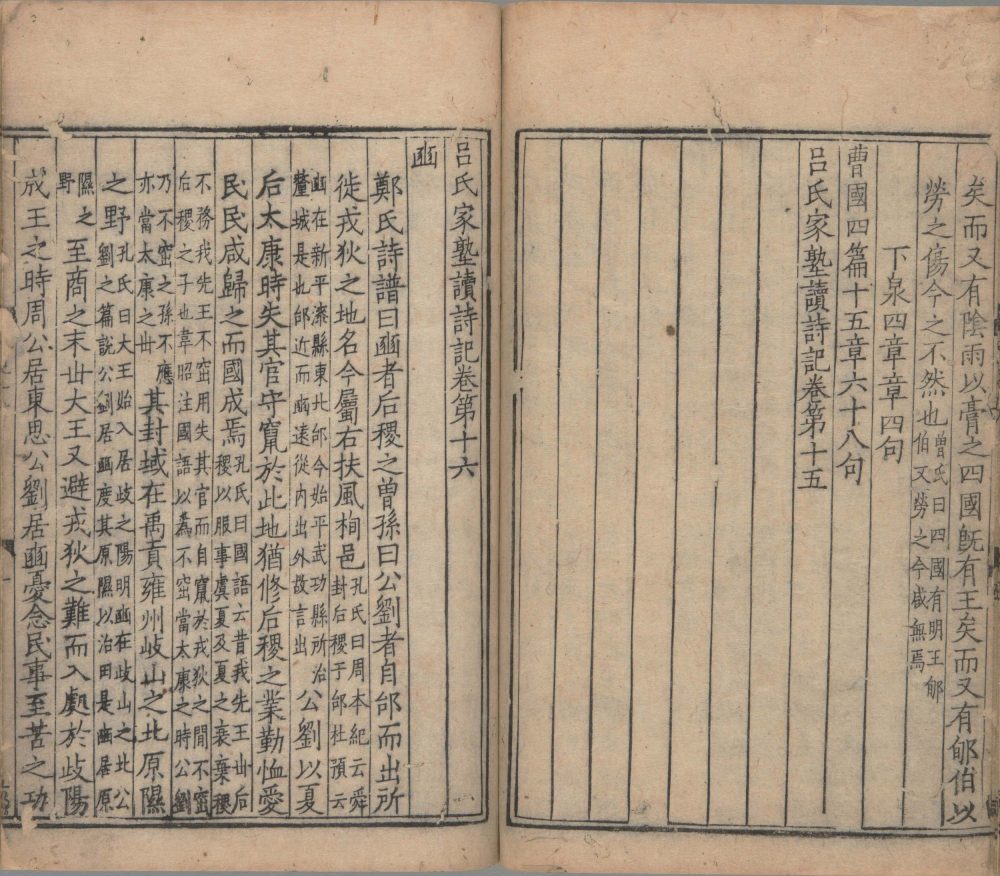 矣而又有陰雨以膏之四國旣有王矣而又有郇伯以
勞之傷今之不然也曾氏曰四國有明王郇
伯又勞之今咸無焉
下泉四章章四句
曹國四篇十五章六十八句
呂氏家塾讀詩記卷第十五
呂氏家塾讀詩記卷第十六
豳
鄭氏詩譜曰豳者后稷之曾孫曰公劉者自邰而出所
徙戎狄之地名今屬右扶風栒邑孔氏曰周本紀云舜
封后稷于邰杜預云
豳在新平漆縣東北邰今始平武功縣所治
釐城是也邰近而豳遠從内出外故言出
公劉以夏
后太康時失其官守竄於此地猶修后稷之業勤恤愛
民民咸歸之而國成焉孔氏曰國語云昔我先王世后
稷以服事虞夏及夏之衰棄稷
不務我先王不窋用失其官而自竄於戎狄之間不窋
后稷之子也韋昭注國語以為不窋當太康之時公劉
乃不窋之孫不應
亦當太康之世
其封域在禹貢雍州岐山之北原隰
之野孔氏曰大王始入居岐之陽明豳在岐山之北公
劉之篇說公劉居豳度其原隰以治田是豳居原
隰之
野
至商之末世大王又避戎狄之難而入處於岐陽
成王之時周公居東思公劉居豳憂念民事至苦之功